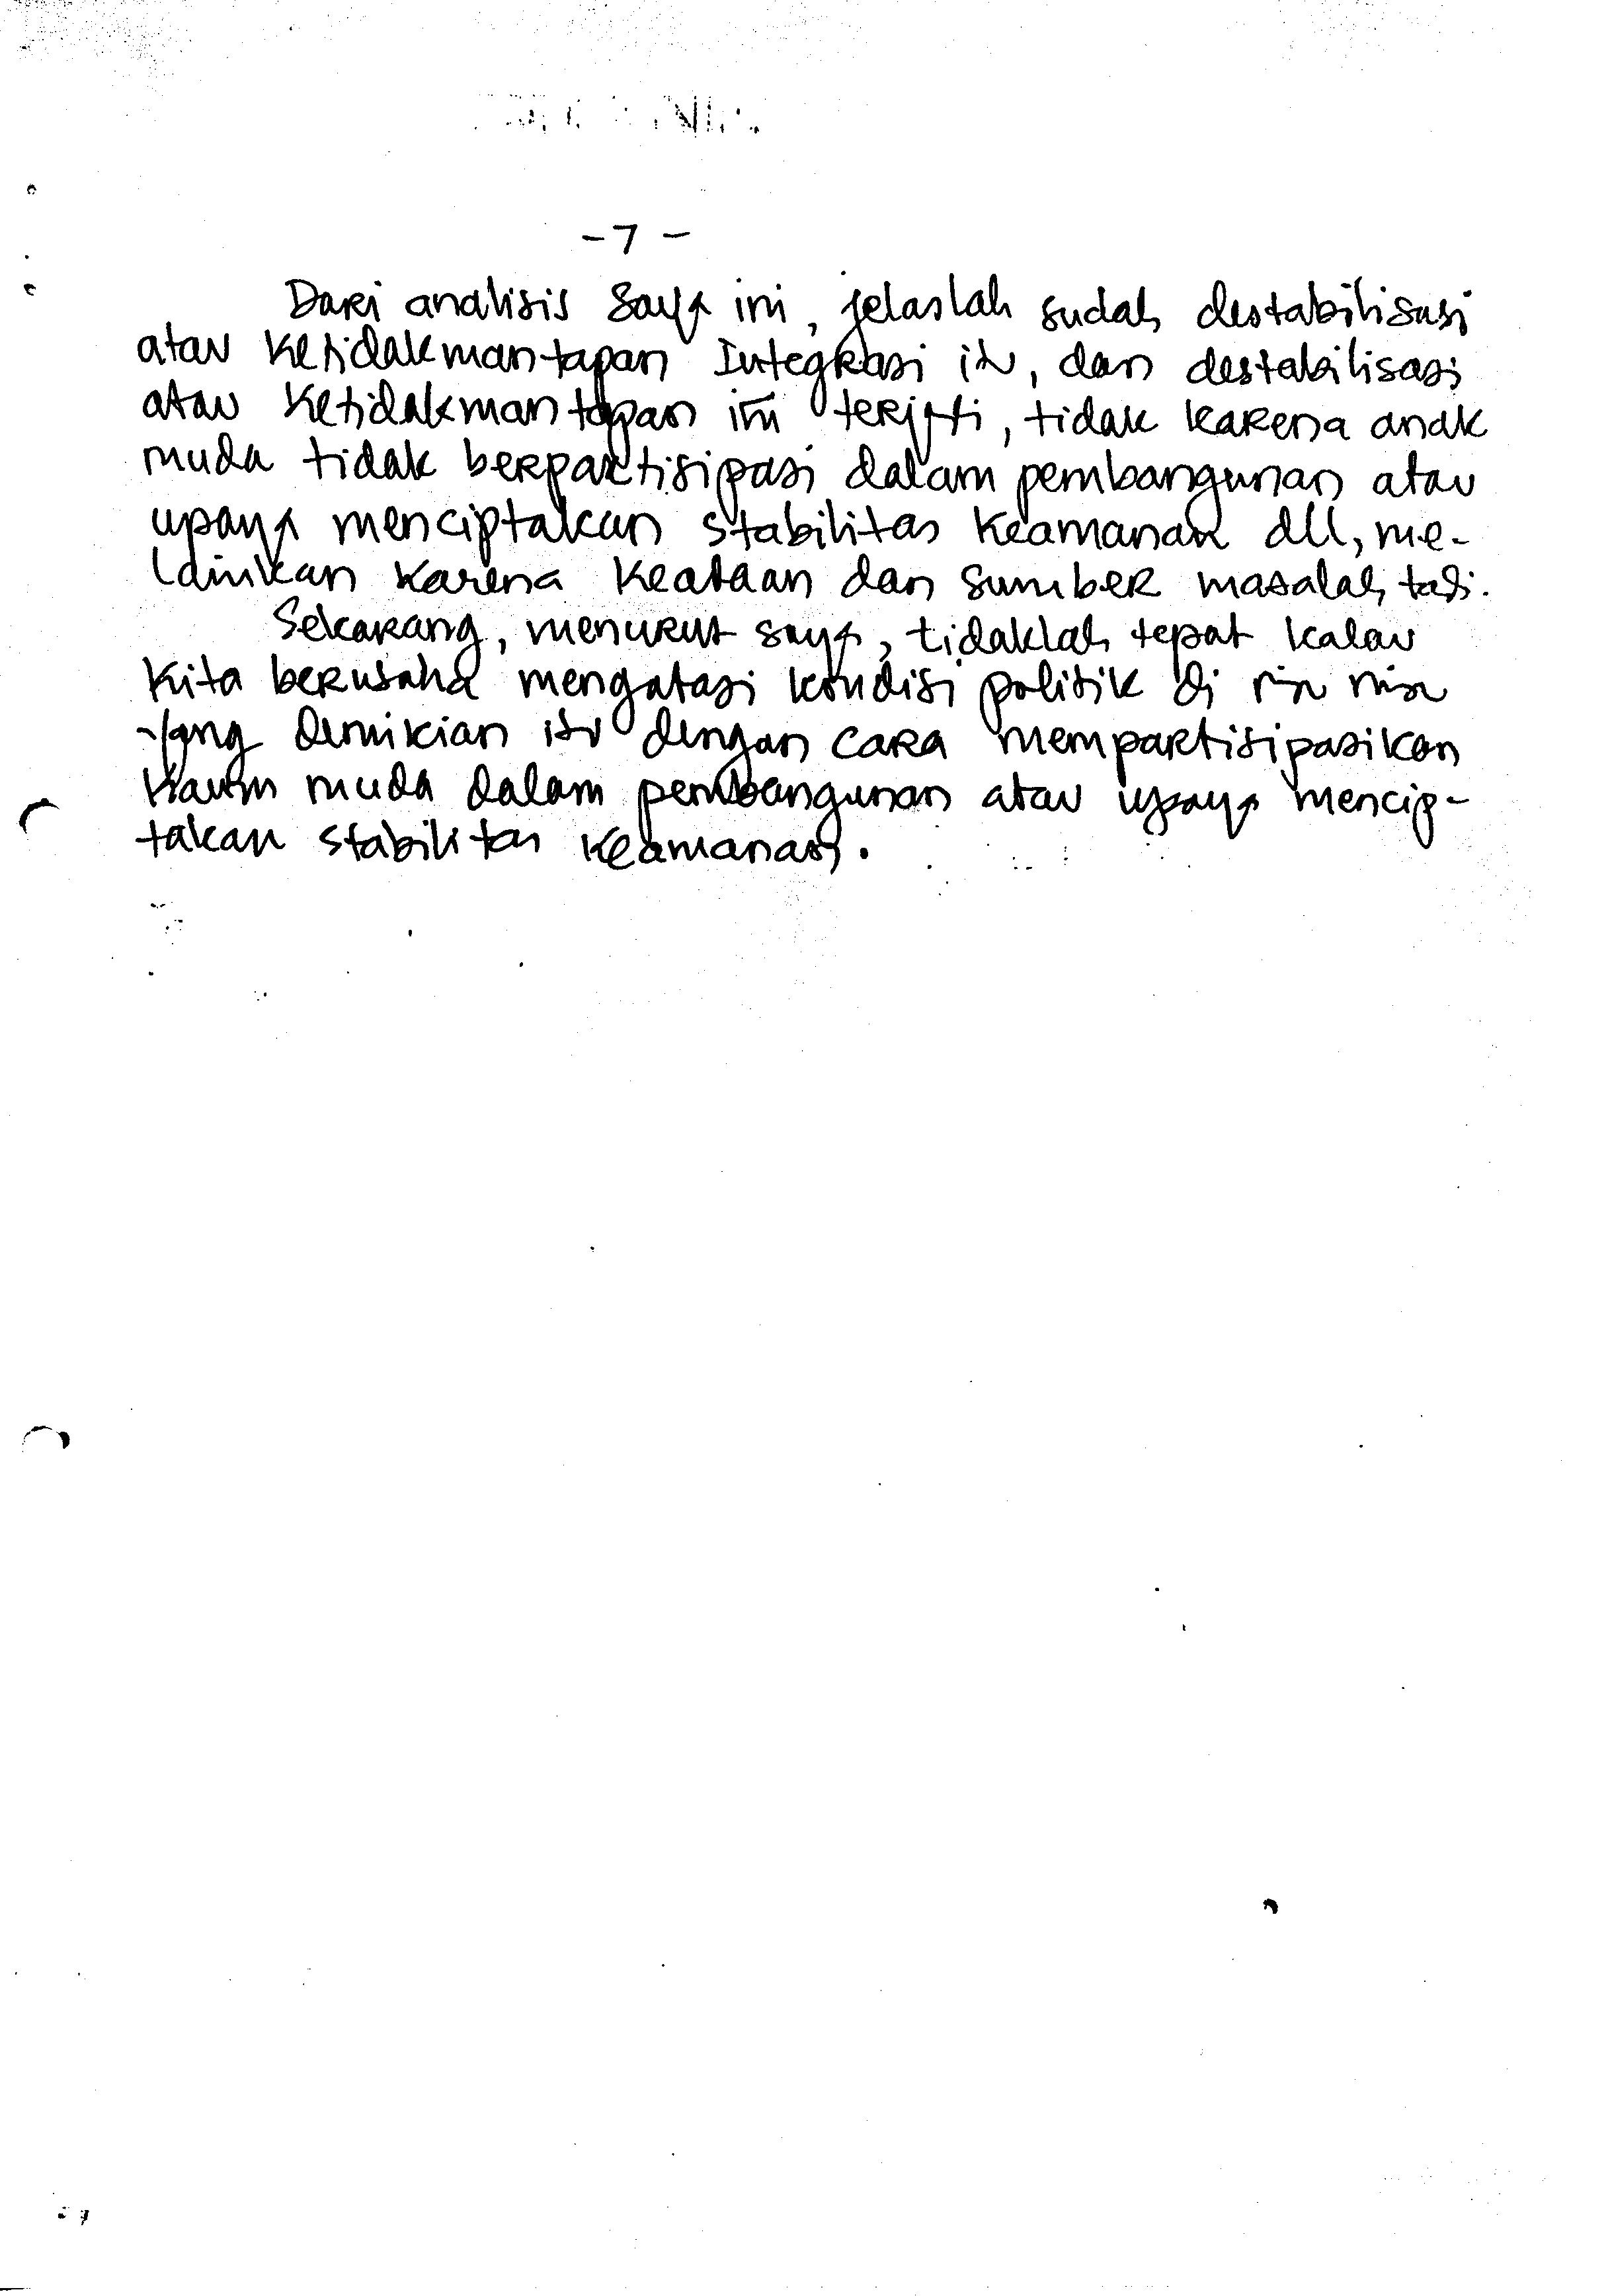 - 7 -
Dari analisis saya ini, jelaslah sudah destabilisasi
atau ketidakmantapan Integrasi itu, dan destabilisasi
atau ketidakmantapan ini terjadi, tidak karena anak
muda tidak berpartisipasi dalam pembangunan atau
upaya menciptakan stabilitas keamanan dll, me-
lainkan karena keadaan dan sumber masalah tadi.
Sekarang, menurut saya, tidaklah tepat kalau
kita berusaha mengatasi kondisi politik di
yang demikian itu dengan cara mempartisipasikan
kaum muda dalam pembangunan atau upaya mencip-
takan stabilitas keamanan.